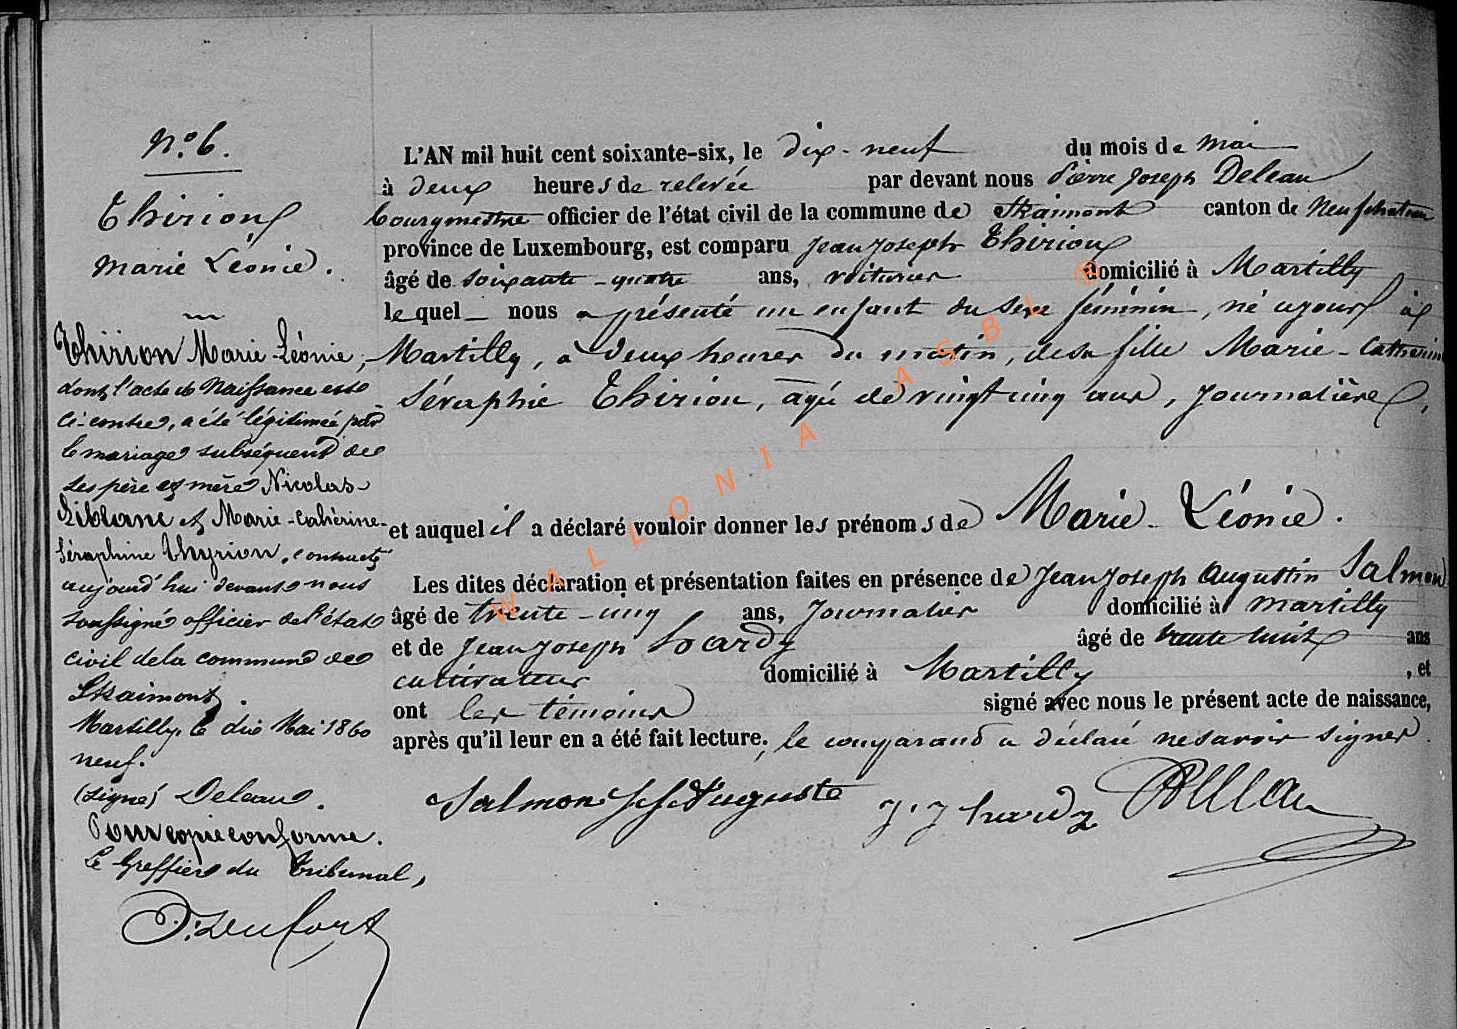 N.º 6.
Thirion
Marie Léonie.
Thirion Marie-Léonie,
dont l'acte de Naissance est
ci-contre, a été légitimée par
le mariage subséquent de
ses père et mère Nicolas
et Marie-Cathérine-
Séraphine Thyrion, contracté
aujourd'hui devant nous
soussigné officier de l'état
civil de la commune de
Straimont.
Martilly, le dix Mai 1860
neuf.
(signé) Deleau.
Pour copie conforme.
Le Greffier du Tribunal,
L'AN mil huit cent soixante-six, le dix-neuf du mois de mai
à deux heures de relevée par devant nous Pierre Joseph Deleau
bourgmestre officier de l'état civil de la commune de Straimont canton de Neufchateau
province de Luxembourg, est comparu Jean Joseph Thirion
âgé de soixante-quatre ans, voiturier domicilié à Martilly
lequel nous a présenté un enfant du sexe féminin, né cejour à
Martilly, à deux heures du matin, de sa fille Marie-Catherine
Séraphie Thirion, âgé de vingt cinq ans, Journalière,
et auquel il a déclaré vouloir donner les prénoms de Marie-Léonie.
Les dites déclaration et présentation faites en présence de Jean Joseph Augustin Salmon
âgé de trente-cinq ans, Journalier domicilié à Martilly
et de Jean Joseph Hardy âgé de trente huit ans
cultivateur domicilié à Martilly, et
ont les témoins signé avec nous le présent acte de naissance,
après qu'il leur en a été fait lecture, le comparand a déclaré ne savoir signer.
Salmon J J Auguste J. J Hardy Deleau
WALLONIA ASBL ®